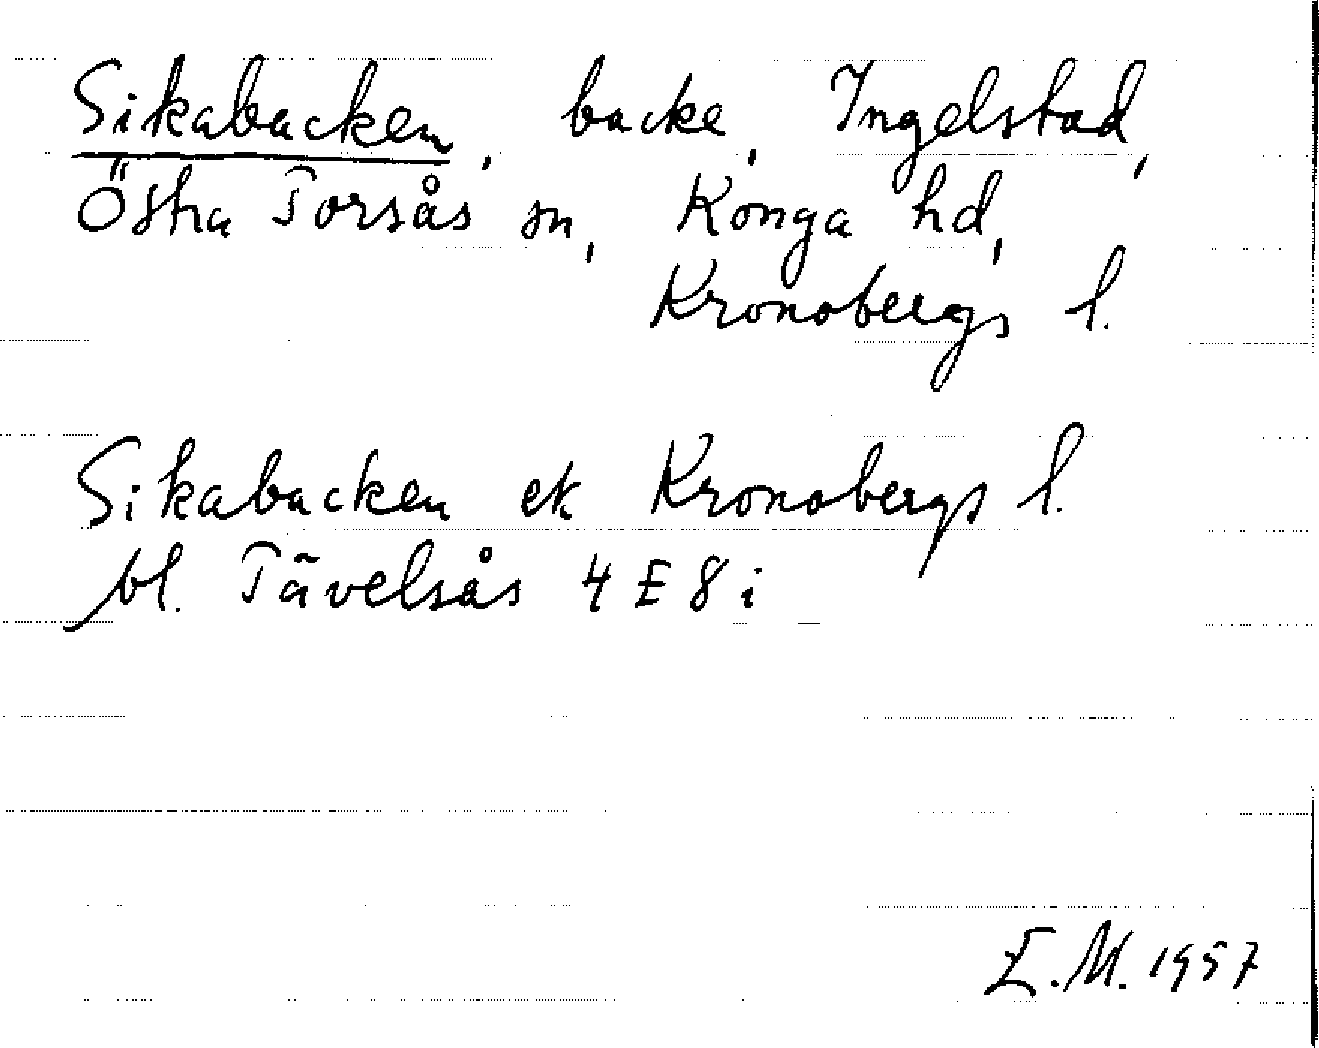 Sikabacken, backe, Ingelstad,
Östra Torsås sn, Konga hd,
Kronobergs l.
Sikabacken ek Kronobergs l.
bl. Tävelsås 4 E 8 i
E.M. 1957